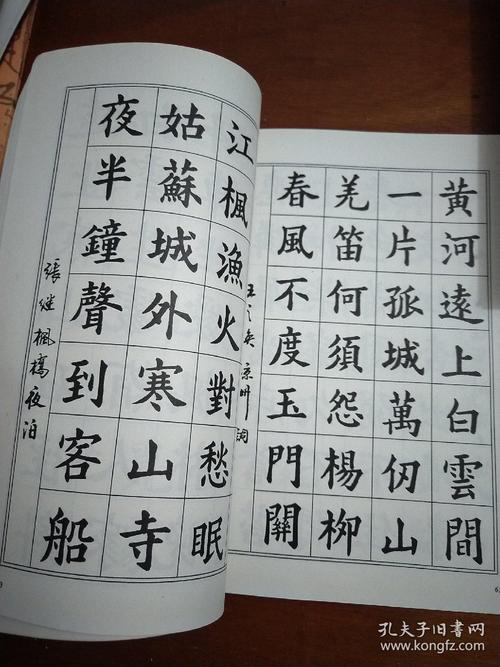 黃河遠上白雲間
一片孤城萬仞山
羌笛何須怨楊柳
春風不度玉門關
王之奐 凉州詞
江楓漁火對愁眠
姑蘇城外寒山寺
夜半鐘聲到客船
張继楓橋夜泊
孔夫子旧书网
www.kongfz.com